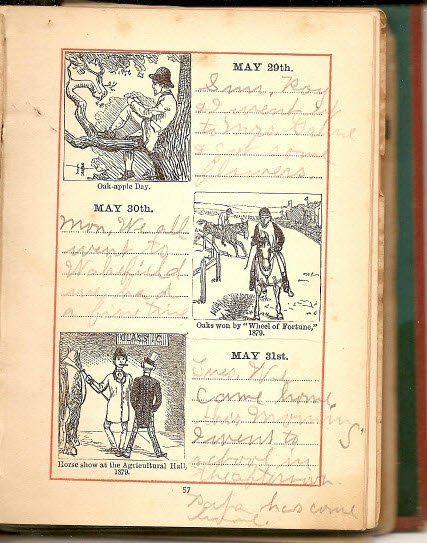 MAY 29th.
Sun, Roy
& I went
to Mrs.
& got some
flowers
Oak-apple Day.
MAY 30th.
Mon, We all
went to
we had
a fine time
Oaks won by "Wheel of Fortune,"
1879.
HORSE SHOW
MAY 31st.
Tues. We
Came home
this Morning
I went to S
school in
the afternoon.
Horse show at the Agricultural Hall,
1879.
Papa has come
home.
57